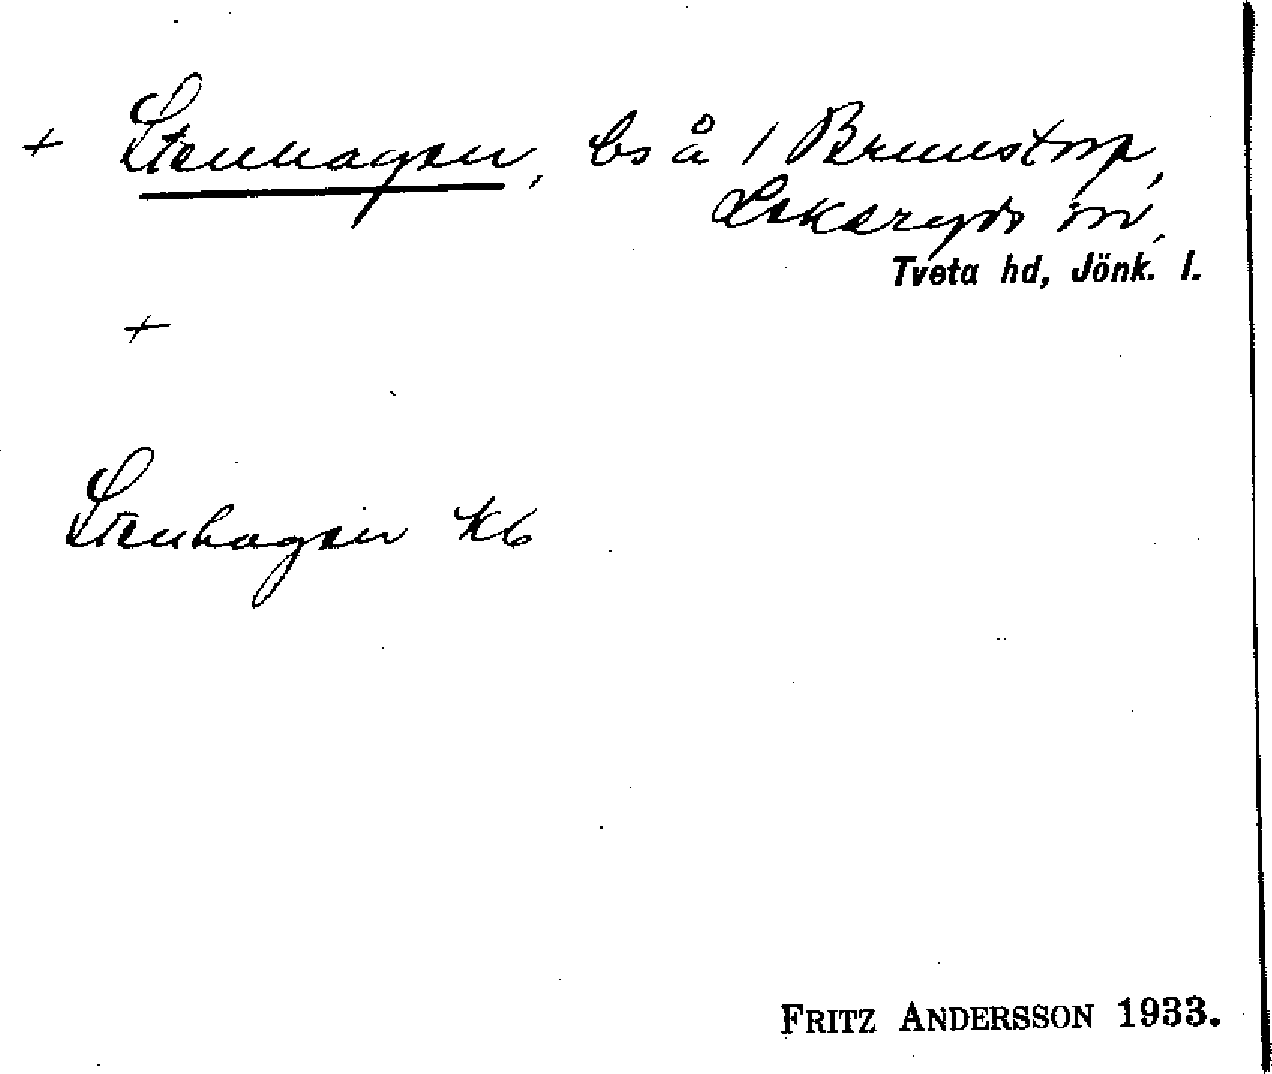 + Stenhagen, bs å 1 Brunstorp,
Lekeryds sn,
Tveta hd, Jönk. l.
+
Stenhagen kb
FRITZ ANDERSSON 1933.